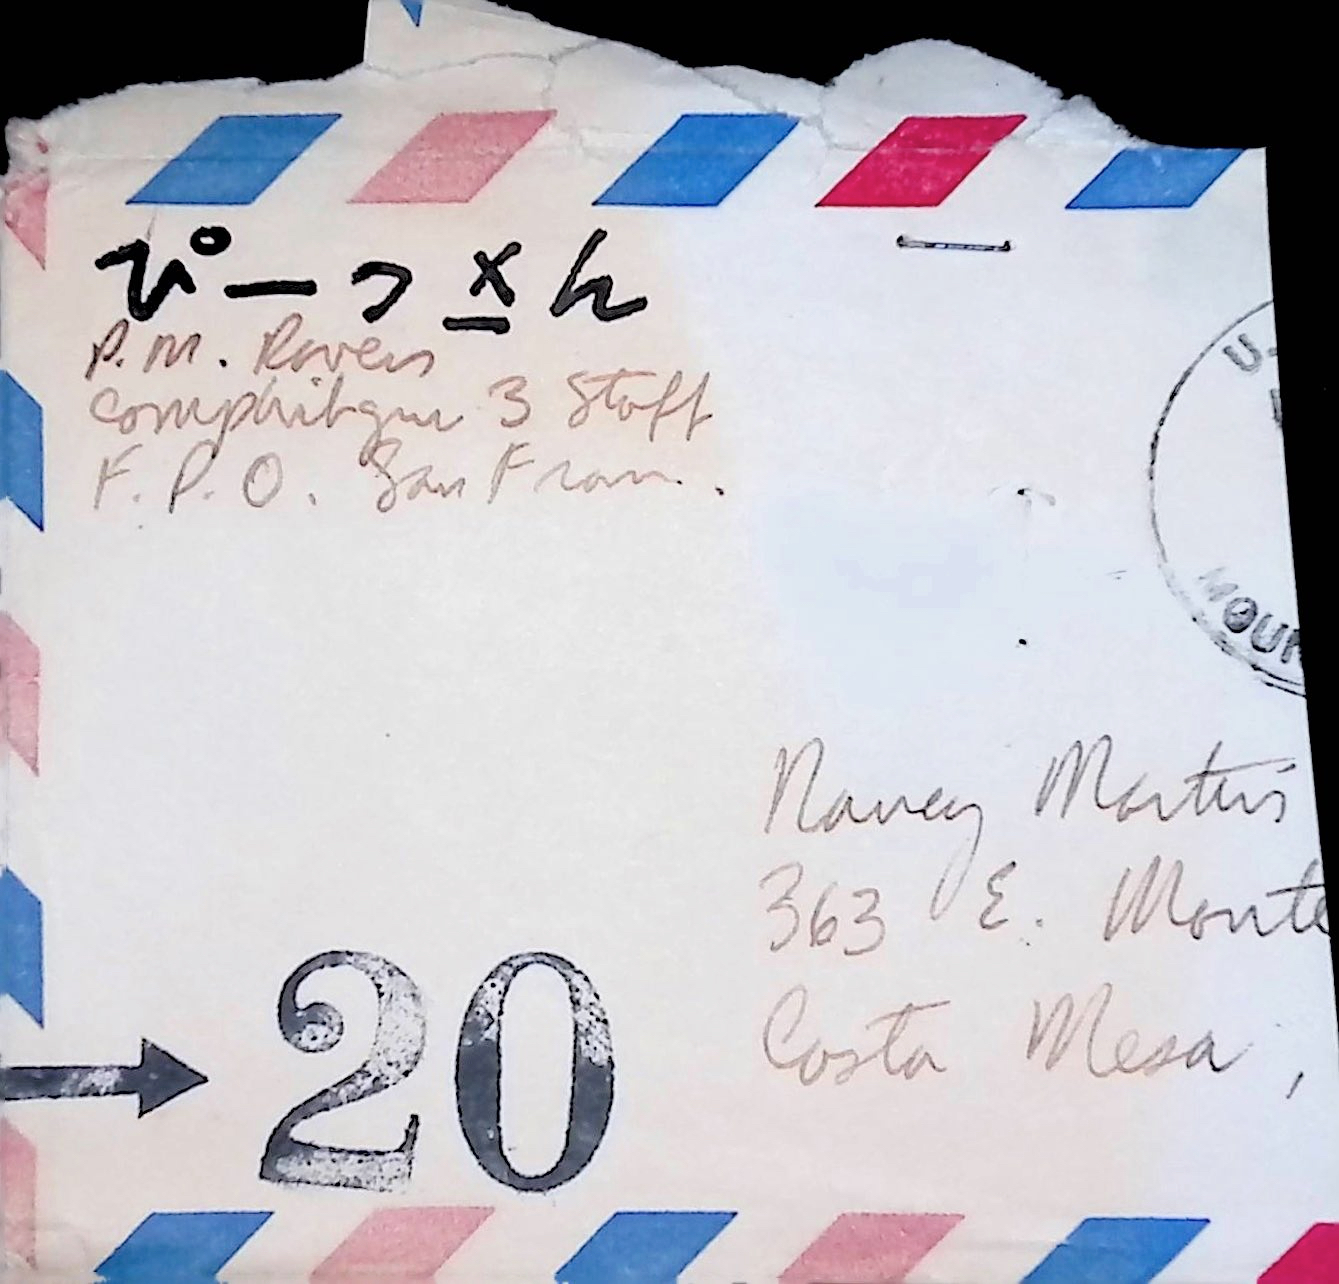 ぴーつ x ん
P. M. Rovers
Comphibgru 3 Staff
F. P. O. San Fran.
U.
MOUN
Nancy Martin
363 E. Monte
Costa Mesa,
20